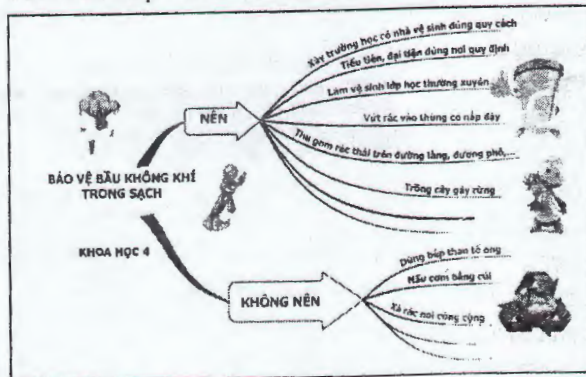 BẢO VỆ BẦU KHÔNG KHÍ
TRONG SẠCH
KHOA HỌC 4
NÊN
Xây trường học có nhà vệ sinh đúng quy cách
Tiểu tiện, đại tiện đúng nơi quy định
Làm vệ sinh lớp học thường xuyên
Vứt rác vào thùng có nắp đậy
Thu gom rác thải trên đường làng, đương phố,...
Trồng cây gây rừng
KHÔNG NÊN
Dùng bếp than tổ ong
Nấu cơm bằng củi
Xả rác nơi công cộng